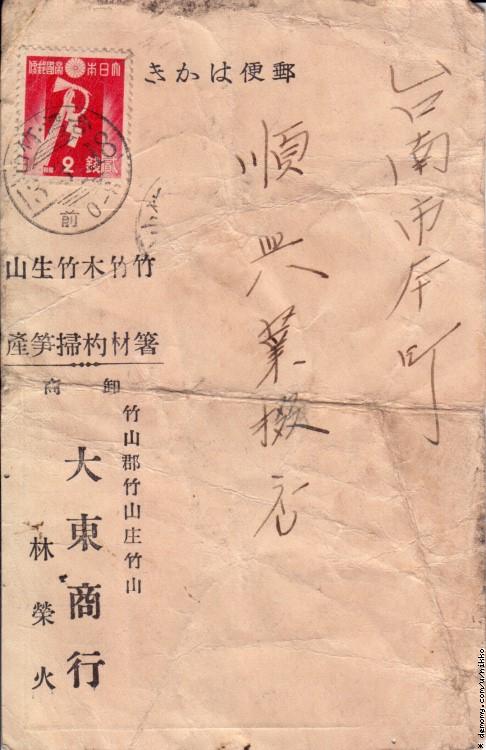 郵便はかき
大日本帝國郵便
2
貳錢
前
0-8
台南市本町
順興業
竹箸
竹材
木杓
竹掃
生笋
山產
卸商
竹山郡竹山庄竹山
大東商行
林榮火